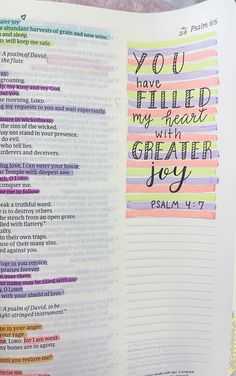 Psalm 6:6
eater joy
e abundant harvests of grain and new wine.
and sleep,
, will keep me safe.
A psalm of David,
the flute.
my king and my God,
t you.
e morning, LORD.
ng my requests to you and wait expectantly.
sure in wickedness;
the sins of the wicked.
may not stand in your presence,
do evil.
who tell lies.
urderers and deceivers.
ing love, I can enter your house;
r Temple with deepest awe.
th, O LORD,
conquer me.
or me to follow
peak a truthful word.
e is to destroy others.
the stench from an open grave.
led with flattery.
in their own traps.
use of their many sins,
led against you.
fuge in you rejoice
praises forever.
n over them
ur name may be filled with joy.
y, O LORD;
with your shield of love.
A psalm of David, to be
ight-stringed instrument.
e in your anger
your rage.
LORD, for I am weak.
my bones are in agony.
until you restore me?
rescue me.
YOU
have
FILLED
my heart
with
GREATER
joy
PSALM 4:7